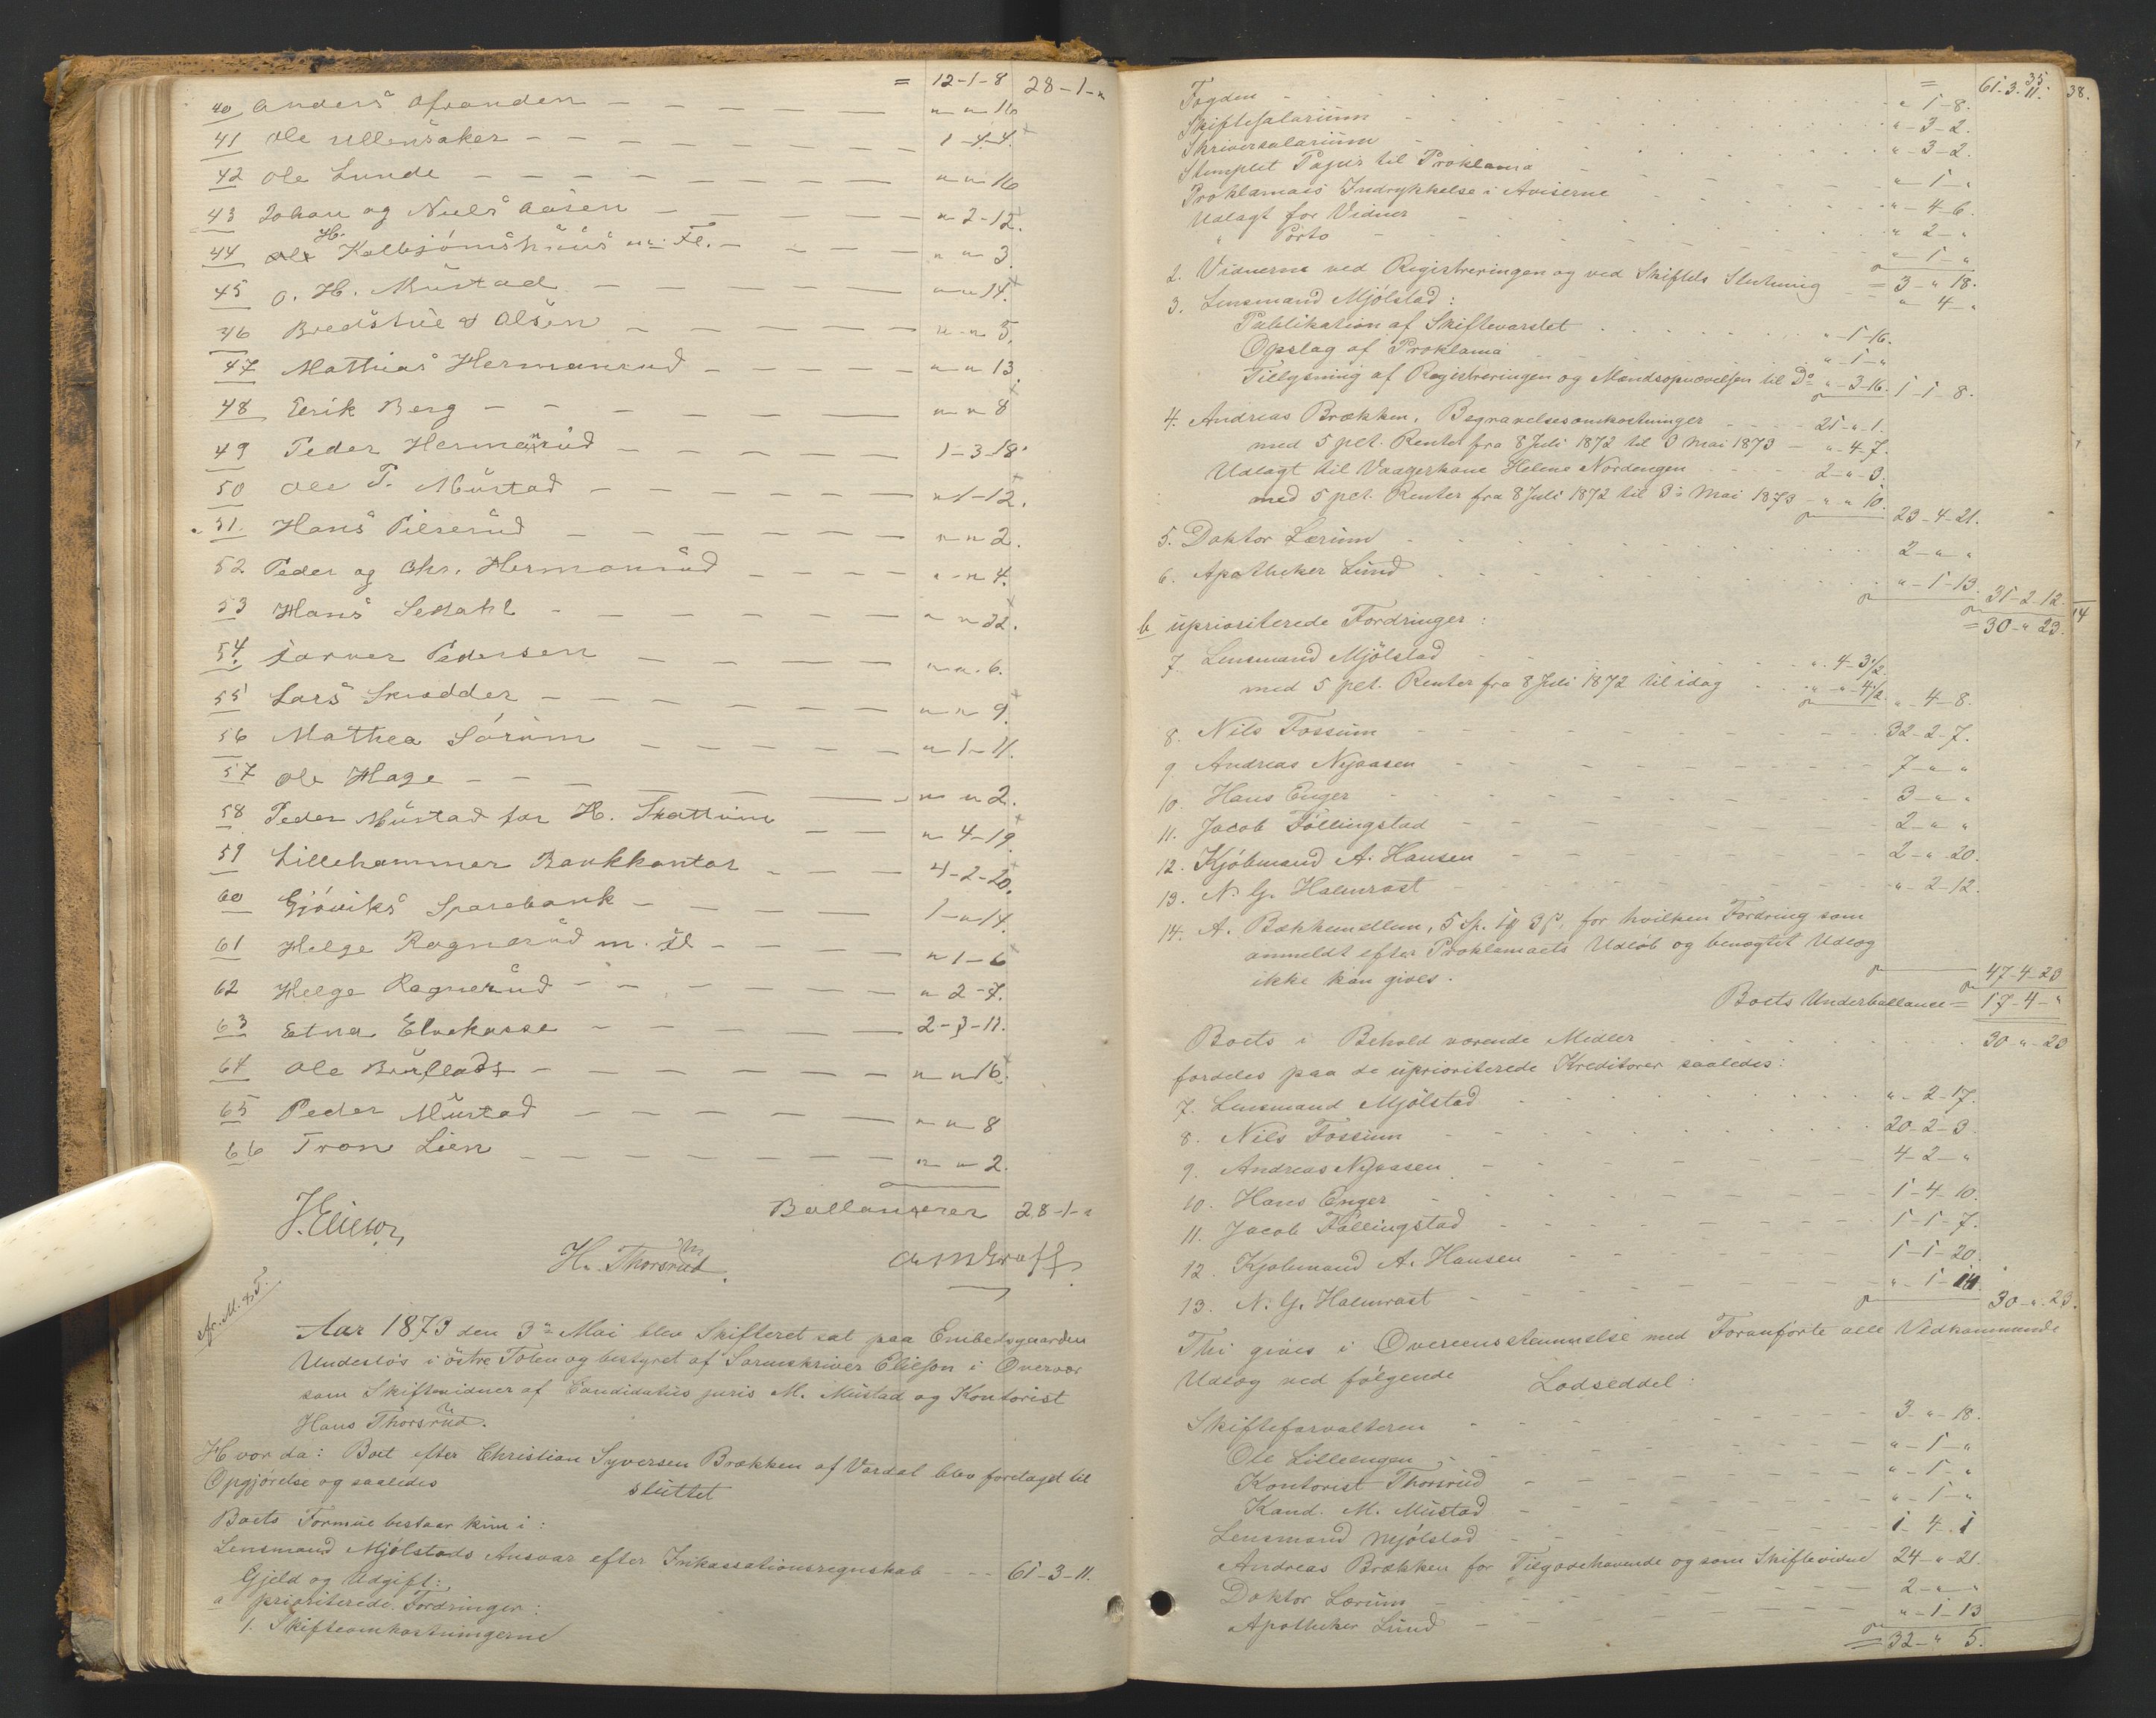 = 12-1-8 28-1-"
40 Anders Ofvanden - - - - " " 16
41 Ole Ullensaker - - - - - - 1-4-4.
42 Ole Lunde - - - - - - " " 16
43 Johan og Niels Aasen - - - - " 2-12.
44 H. Kolbjørnshuus m: Fl. - - - - " " 3.
45 O. H. Mustad - - - - - " " 14.
46 Bredstue & Olsen - - - - " " 5.
47 Mathias Hermanrud - - - - " " 13
48 Eerik Berg - - - - - " " 8
49 Peder Hermanrud - - - - - 1-3-18.
50 Ole P. Mustad - - - - - " 1-12.
51. Hans Pilserud - - - - - " " 2.
52 Peder og Chr. Hermanrud - - - - " " 4.
53 Hans Sedahl - - - - - " " 22.
54. Farver Pedersen - - - - " " 6.
55 Lars Skrædder - - - - - " " 9.
56 Mathea Sørum - - - - " 1-11.
57 Ole Hage - - - - - " " 2.
58 Peder Mustad for H. Skattum - - " 4-19.
59 Lillehammer Bankkontor - - - 4-2-20.
60 Gjøviks Sparebank - - - - 1-"-14.
61 Helge Rognerud m. fl - - - " 1-6
62 Helge Rognerud - - - - - " 2-7.
63 Etna Elvekasse - - - - 2-3-11.
64 Ole - - - - - " " 16.
65 Peder Mustad - - - - - " " 8
66 Tron Lien - - - - - - " " 2.
Ballanserer 28-1-"
J. Elieson
H. Thorsrud. A. M. Graff
Aar 1873 den 3die Mai blev Skifteret sat paa Embedsgaarden
Undeslös i östre Toten og bestyret af Sorenskriver Elieson i Overvær
som Skiftevidner af Candidatus juris M. Mustad og Kontorist
Hans Thorsrud.
Hvor da: Boet efter Christian Syversen Brækken af Vardal blev foretaget til
Opgjörelse og saaledes sluttet
Boets Formue bestaar kun i:
Lensmand Mjölstads Ansvar efter Inkassationsregnskab - - - 61-3-11.
Gjeld og Udgift:
a prioriterede Fordringer:
1. Skifteomkostningerne
= 61-3-11. 35 38.
Fogden " 1-8.
Skiftesalarium " - 3-2.
Skriversalarium " - 3-2.
Stemplet Papir til Proklama " - 1 - "
Proklamas Indrykkelse i Aviserne " - 4-6.
Udlagt for Vidner " 2 - "
" Porto " - 1 - "
= 3 - " 18.
2. Vidnerne ved Registreringen og ved Skiftets Slutning " 4 - "
3. Lensmand Mjölstad:
Publikation af Skiftevarslet " - 1-16.
Opslag af Proklama " - 1 - "
Tillysning af Registreringen og Mandsopnævelsen til Do " - 3-16. 1-1-8.
4. Andreas Brækken, Begravelsesomkostninger 21 - " - 1.
med 5 pct. Renter fra 8 Juli 1872 til 3 Mai 1873 - " - 4-7.
Udlagt til Vaagerkone Helene Nordengen 2 - " - 3.
med 5 pct. Renter fra 8 Juli 1872 til 3die Mai 1873 - " " 10. 23-4-21.
5. Doktor Lærum 2 - " "
6. Apotheker Lund " - 1-13. 31-2-12.
= 30 - " 23. 14
b upriorterede Fordringer:
7. Lensmand Mjölstad " - 4-3½
med 5 pct. Renter fra 8 Juli 1872 til idag " - " - 4½ " 4-8.
8. Nils Fossum 32-2-7.
9. Andreas Nyaasen 7 - " "
10. Hans Enger 3 - " "
11. Jacob Föllingstad 2 - " "
12. Kjöbmand A. Hansen 2 - " 20.
13. N. G. Halmrast " - 2-12.
14. A. Bækkemellem, 5 Sp. 1 ₰ 3 β, for hvilken Fordring som
anmeldt efter Proklamaets Udlöb og benægtet Udlæg
ikke kan gives. 47-4-23
Boets Underballance = 17-4-"
Boets i Behold værende Midler 30 " 23
fordeles paa de uprioriterede Kreditorer saaledes:
7. Lensmand Mjölstad " - 2-17.
8. Nils Fossum 20-2-3.
9. Andreas Nyaasen 4-2 - "
10. Hans Enger 1-4-10.
11. Jacob Föllingstad 1-1-7.
12. Kjöbmand A. Hansen 1-1-20.
13. N. G. Halmrast " - 1-14. 30 - " 23.
Thi gives i Overeensstemmelse med Foranförte alle Vedkommende
Udlæg ved fölgende Lodseddel:
Skifteforvalteren 3 - " 18.
Ole Lilleengen " - 1 - "
Kontorist Thorsrud " - 1 - "
Kand. M. Mustad " - 1 - "
Lensmand Mjölstad 1-4-1
Andreas Brækken for Tilgodehavende og som Skiftevidne 24 - " - 21.
Doktor Lærum 2 - " - "
Apotheker Lund " - 1-13
= 32 - " 5.